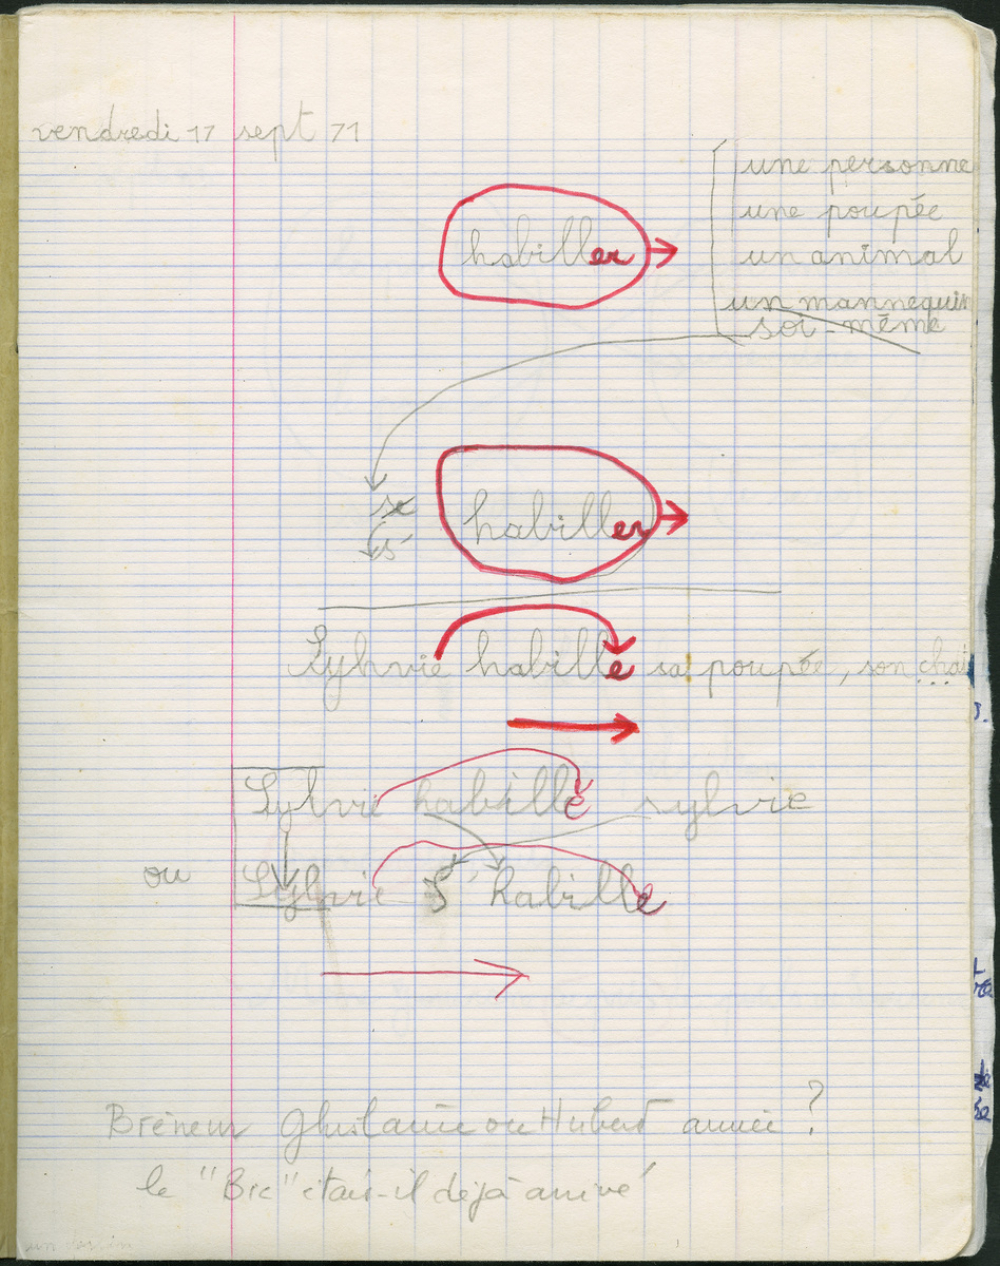 vendredi 17 sept 71
une personne
une poupée
habiller
un animal
un mannequin
soi-même
se
habiller
s'
Sylvie habille sa poupée, son chat
...
Sylvie habille sylvie
ou Sylvie s'habille
ou Hubert année ?
le "Bic" était-il déjà arrivé